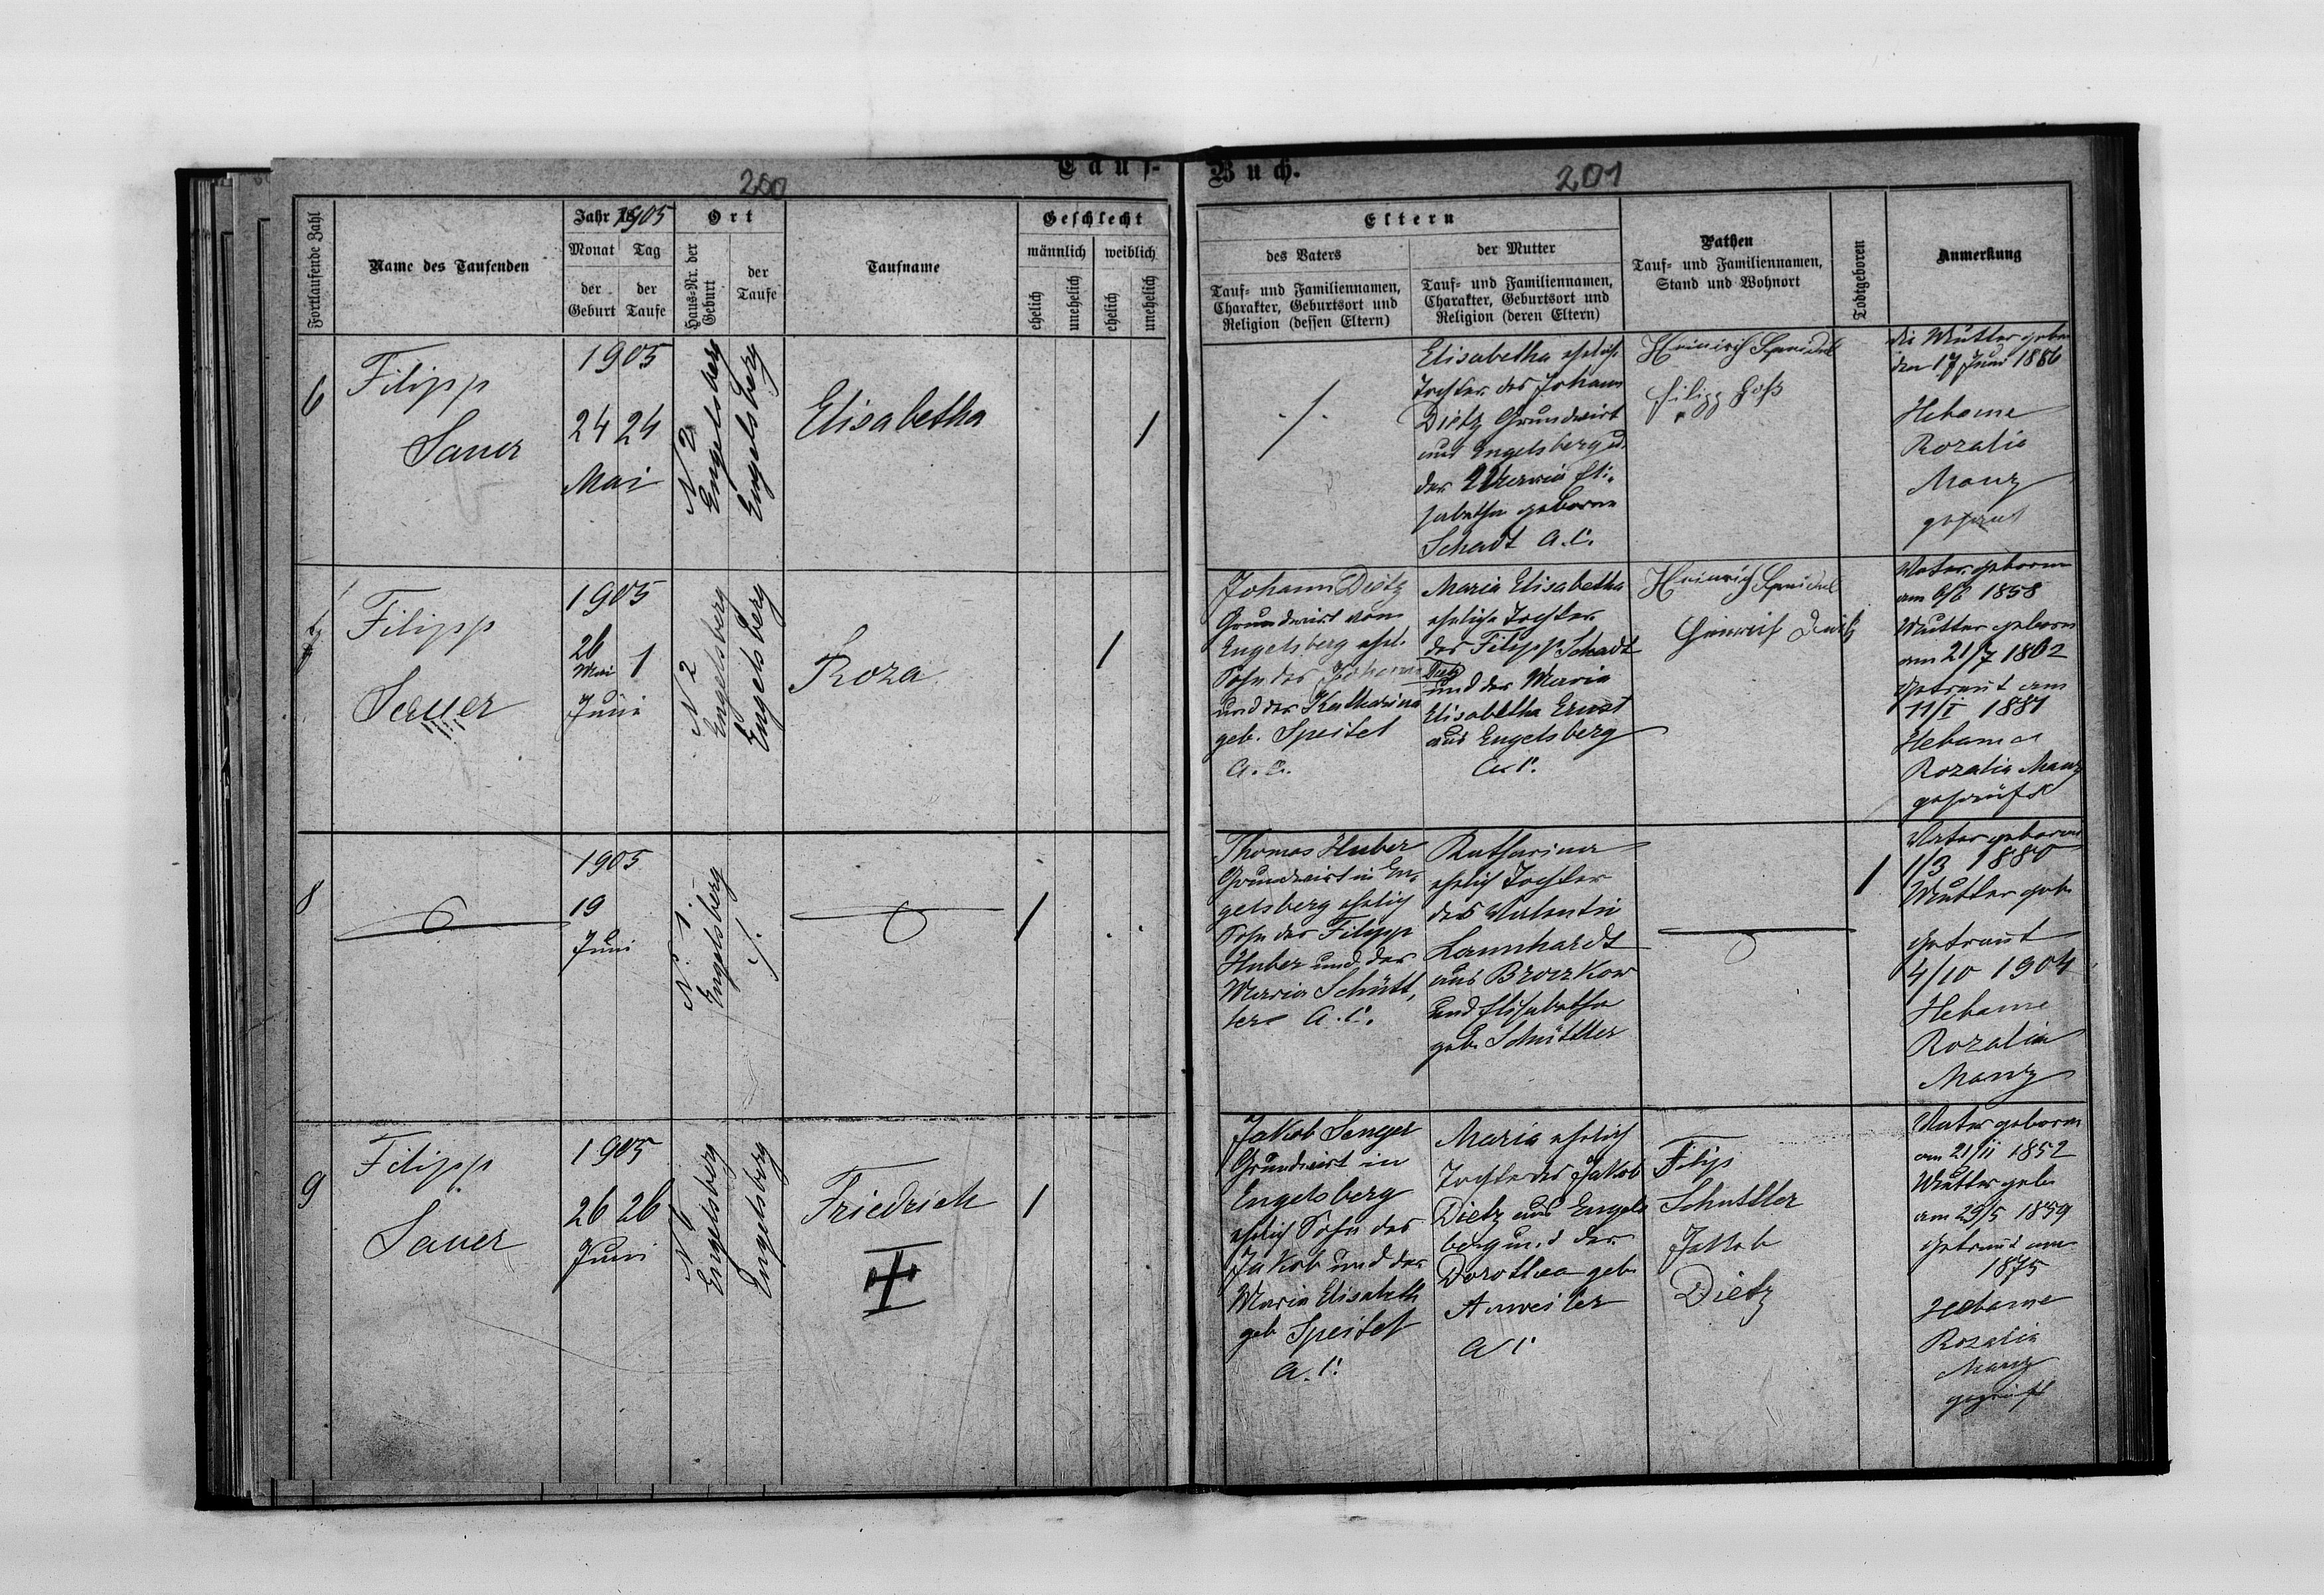 Tauf-
Buch.
200
201
Fortlaufende Zahl
Name des Taufenden
Jahr 1905
Monat
Tag
der Geburt
der Taufe
Ort
Haus-Nr. der Geburt
der Taufe
Taufname
Geschlecht
männlich
weiblich
ehelich
unehelich
ehelich
unehelich
Eltern
des Vaters
Tauf- und Familiennamen,
Charakter, Geburtsort und
Religion (dessen Eltern)
der Mutter
Tauf- und Familiennamen,
Charakter, Geburtsort und
Religion (deren Eltern)
Pathen
Tauf- und Familiennamen,
Stand und Wohnort
Todtgeboren
Anmerkung
6
Filipp
Sauer
1905
24 24
Mai
N 2
Engelsberg
Engelsberg
Elisabetha
1
./.
Elisabetha ehelich
Tochter des Johann
Dietz Grundwirt
aus Engelsberg u.
der Maria Eli-
sabetha geborene
Schadt A.C.
Heinrich
Filipp
die Mutter geboren
den 17 Juni 1886
Hebame
Rozalia
Manz
geprüft
7
Filipp
Sauer
1905
26
Mai
1
Juni
N 2
Engelsberg
Engelsberg
Roza
1
Johann Dietz
Grundwirt von
Engelsberg ehel.
Sohn des Johann Dietz
und der Katharina
geb. Speitel
A.C.
Maria Elisabetha
eheliche Tochter
des Filipp Schadt
und der Maria
Elisabetha Ernst
aus Engelsberg
A.C.
Heinrich
Heinrich
Vater geboren
am 6/6 1858
Mutter geboren
am 21/7 1862
Getraut am
11/I 1881
Hebame
Rozalia Manz
geprüft
8
1905
19
Juni
N. 1.
Engelsberg
./.
1
Thomas Huber
Grundwirt in En-
gelsberg ehelich
Sohn des Filipp
Huber und der
Maria Schütt-
ler A.C.
Katharina
ehelich Tochter
des Valentin
Lannhardt
aus Broczkow
und Elisabetha
geb. Schüttler
1
Vater geboren
1/3 1880
Mutter geb.
Getraut
4/10 1904
Hebame
Rozalia
Manz
9
Filipp
Sauer
1905
26 26
Juni
Engelsberg
Engelsberg
Friedrich
1
Jakob Senger
Grundwirt in
Engelsberg
ehelich Sohn des
Jakob und der
Maria Elisabeth
geb Speitel
A.C.
Maria ehelich
Tochter des Jakob
Dietz aus Engels
berg und der
Dorothea geb.
Anweiler
A C
Filip
Schuttler
Jakob
Dietz
Vater geboren
am 21/II 1852
Mutter geb.
am 29/5 1859
Getraut am
1875
Hebame
Rozalia
Manz
geprüft